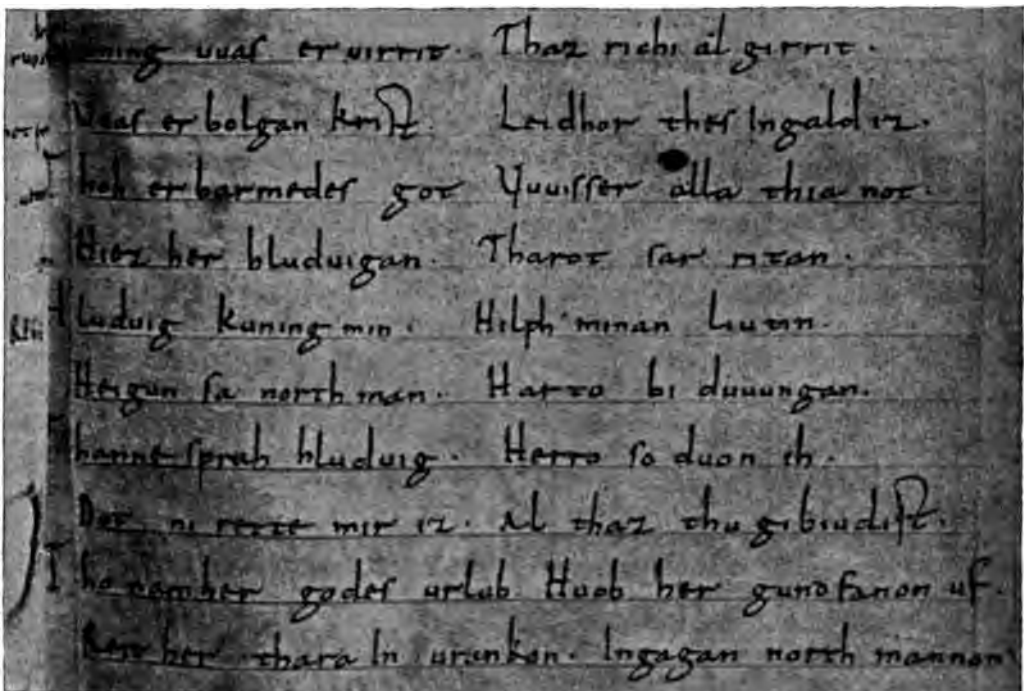 kuning uuas eruirrit. Thaz richi al girrit.
Uuas erbolgan krist. Leidhor thes ingald iz.
Thoh erbarmedes got Vuuisser alla thia not.
Hiez her hluduigan. Tharot sar ritan.
Hluduig kuning min. Hilph minan liutin.
Heigun sa northman. Harto bi duuungan.
Thanne sprah hluduig. Herro so duon ih.
Dot ni rette mir iz. Al thaz thu gibiudist.
Tho namher godes urlub Huob her gundfanon uf.
Reit her thara in urankon. Ingagan northmannon